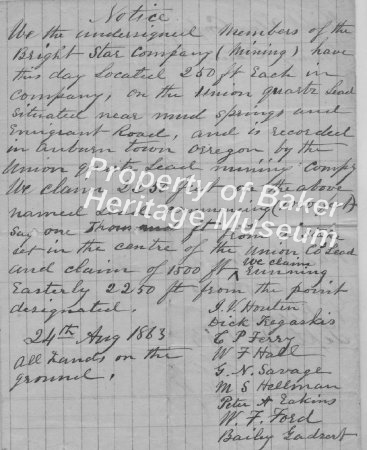 Notice
We the undersigned members of the
Bright Star Company (Mining) have
this day Located 250 ft Each in
company, on the Union quartz Lead
Situated near mud Springs and
Emigrant Road, and is recorded
in Auburn town Orregon by the
Union quartz Lead mining Compy
We claim 2250 feet on the above
named
Say one ft from
set in the centre of the Union Co Lead
and claim of 1500 ft we claim running
Easterly 2250 ft from the point
designated.
24th Aug 1863
All hands on the
ground.
Dick
C P Ferry
W F Hall
G. N. Savage
M S Hellman
Peter A Eakins
W. F. Ford
Baily
Property of Baker
Heritage Museum